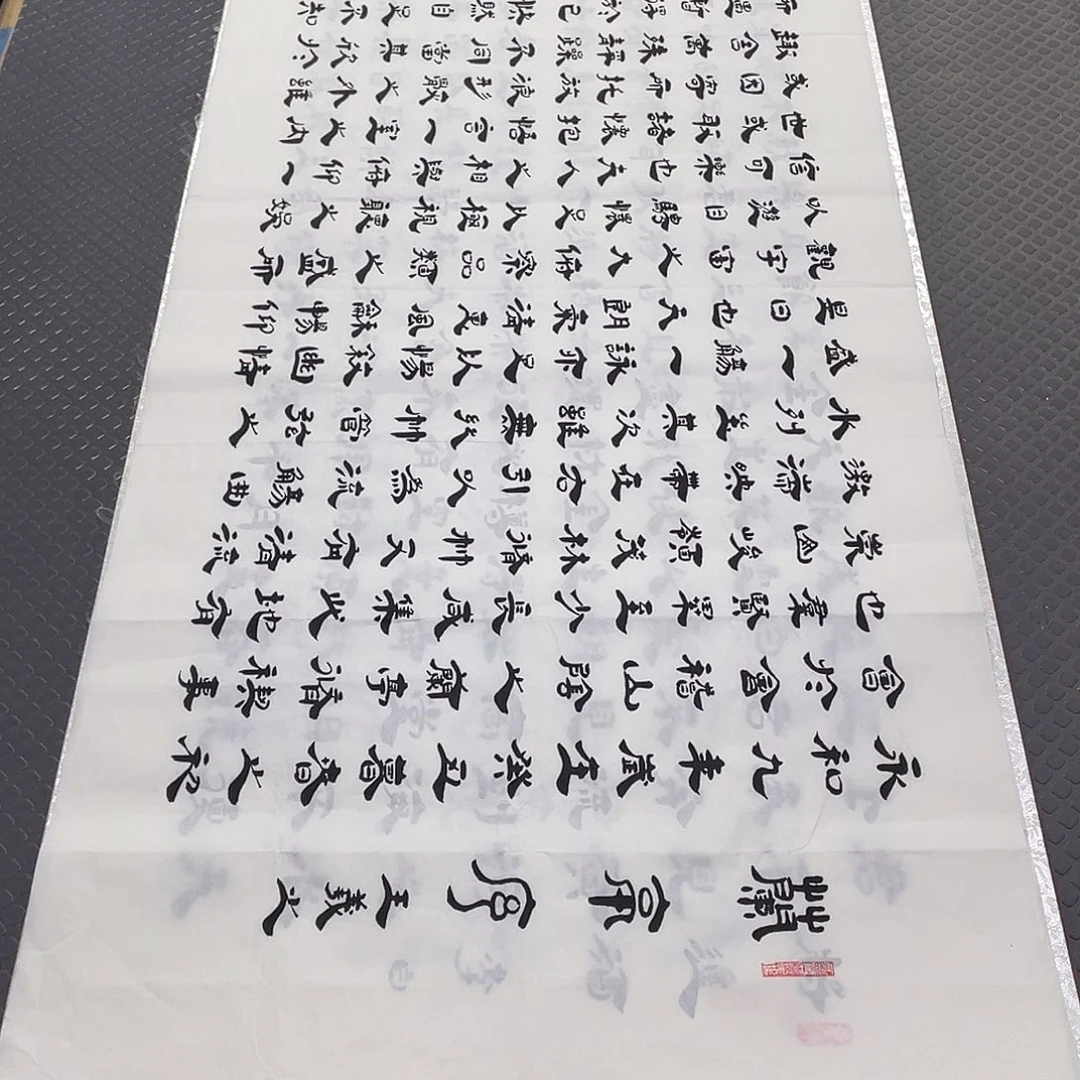 蘭亭序王羲之
永和九秊歲在癸丑暮春之初
會於會稽山陰之蘭亭脩禊事
也羣賢畢至少長咸集此地有
崇山峻領茂林脩竹又有清流
激湍映帶左右引以為流觴曲
水列坐其次雖無絲竹管弦之
盛一觴一詠亦足以暢敘幽情
是日也天朗氣清惠風龢暢仰
觀宇宙之大俯察品類之盛所
以遊目騁懷足以極視聽之娛
信可樂也夫人之相與俯仰一
世或取諸懷抱悟言一室之內
或因寄所托放浪形骸之外雖
趣舍萬殊靜躁不同當其欣於
所遇暫得於己快然自足不知